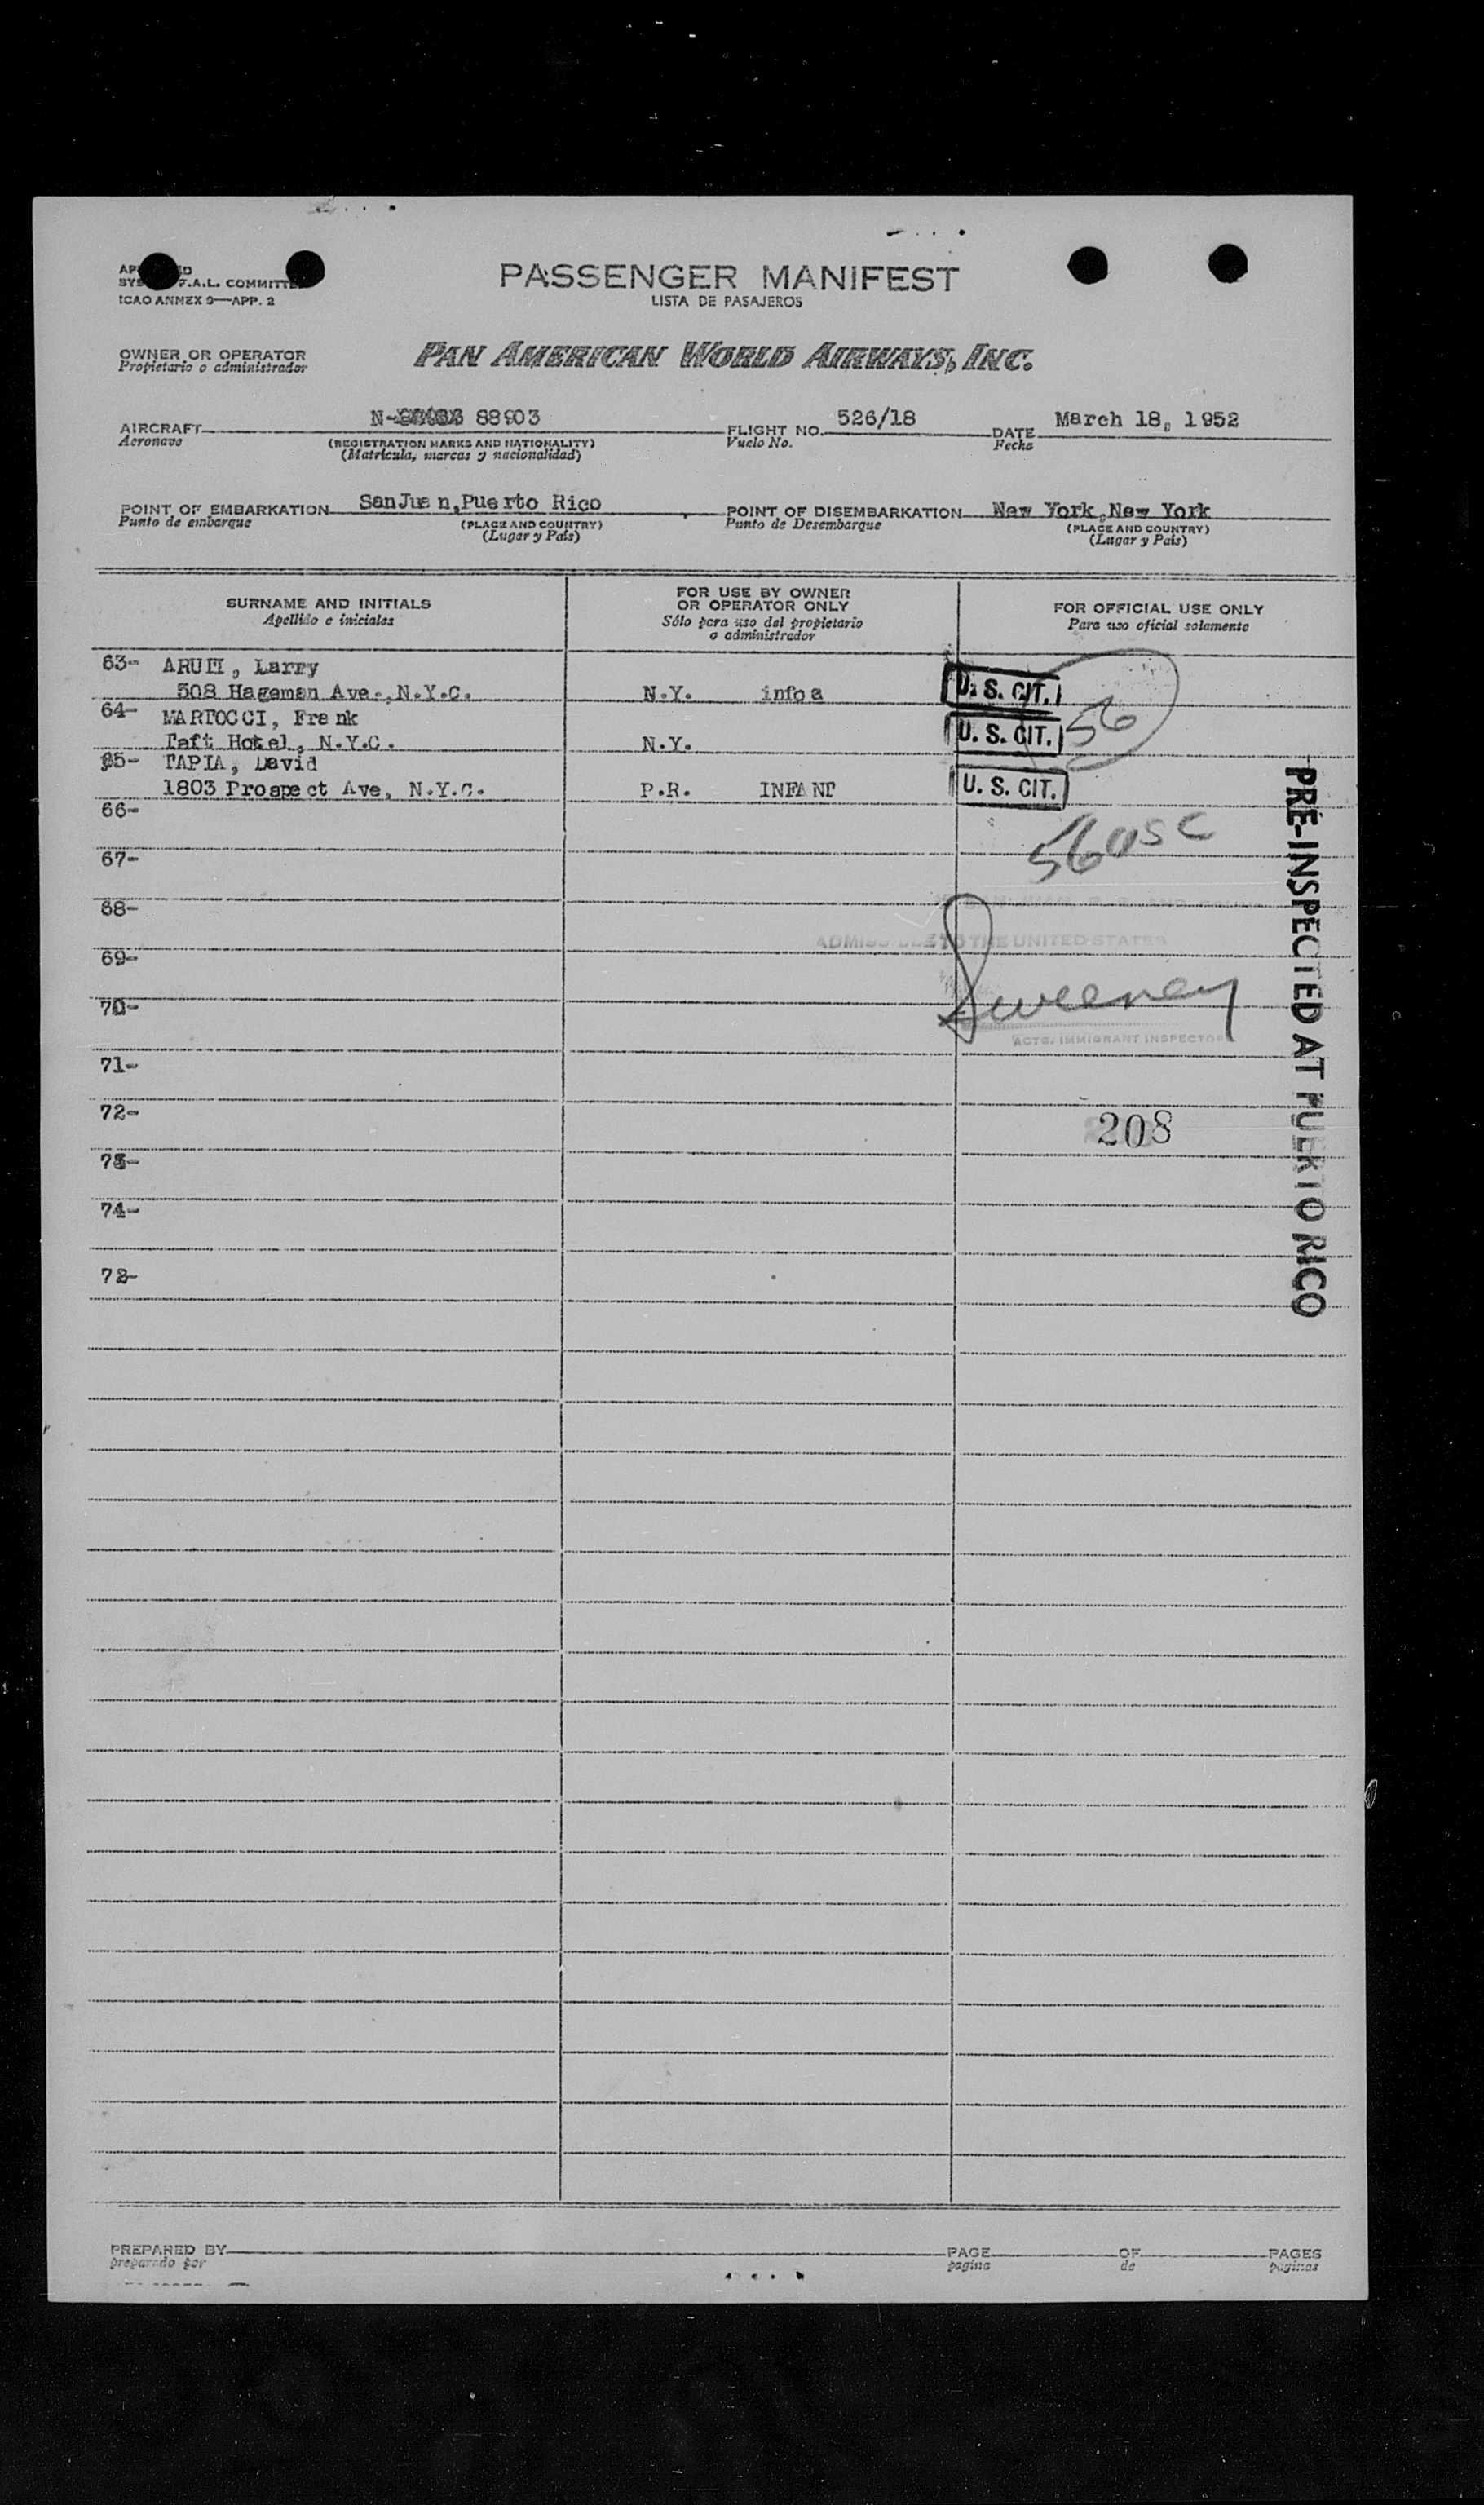 PASSENGER MANIFEST
LISTA DE PASAJEROS
F.A.L. COMMITTE
ICAO ANNEX 9—APP. 2
OWNER OR OPERATOR
Propietario o administrador
PAN AMERICAN WORLD AIRWAYS, INC.
AIRCRAFT N- 88903 FLIGHT NO. 526/18 DATE March 18, 1952
Aeronave (REGISTRATION MARKS AND NATIONALITY) Vuelo No. Fecha
(Matrícula, marcas y nacionalidad)
POINT OF EMBARKATION SanJuan,Puerto Rico POINT OF DISEMBARKATION New York,New York
Punto de embarque (PLACE AND COUNTRY) Punto de Desembarque (PLACE AND COUNTRY)
(Lugar y País) (Lugar y País)
SURNAME AND INITIALS
Apellido e iniciales
FOR USE BY OWNER
OR OPERATOR ONLY
Sólo para uso del propietario
o administrador
FOR OFFICIAL USE ONLY
Para uso oficial solamente
63- Larry
508 Hageman Ave., N.Y.C. N.Y. infoa U. S. CIT.
64- MARTOCCI, Frank
Taft Hotel, N.Y.C. N.Y. U. S. CIT. 56
65- TAPIA, David
1803 Prospect Ave, N.Y.C. P.R. INFANT U. S. CIT.
66-
56 USC
67-
68-
ADMISSIBLE TO THE UNITED STATES
69-
Sweeney
70-
ACTG. IMMIGRANT INSPECTOR
71-
72-
208
73-
74-
72-
PRE-INSPECTED AT PUERTO RICO
PREPARED BY PAGE OF PAGES
preparado por pagina de paginas